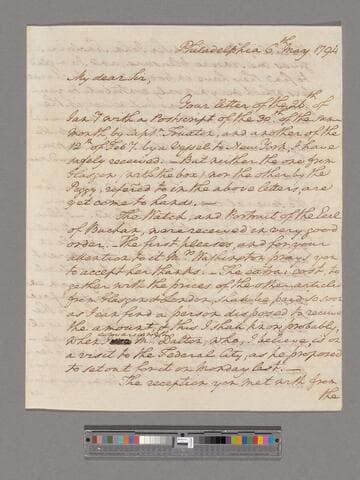 Philadelphia 6th May 1794
My dear Sir,
Your letter of the 26th of
Jany with a Postscript of the 30th of the same
month by Captn. Truxter, and another of the
12th of Feby. by a Vessel to New York, I have
safely received. — But neither the one from
Glasgow, (with the box) nor the other by the
Peggy, refered to in the above letters, are
yet come to hand. —
The Watch, and Portrait of the Earl
of Buchan, were received in very good
order. — The first pleases, and for your
attention to it Mrs. Washington prays you
to accept her thanks. — The extra cost, to
gether with the prices of the other articles
from Glasgow & London, shall be paid so soon
as I can find a person disposed to receive
the amount; & this I shall know probably,
when Mr. Dalton, who, I believe, is on
a visit to the Federal City, as he proposed
to set out for it on Monday last. —
The reception you met with from
the